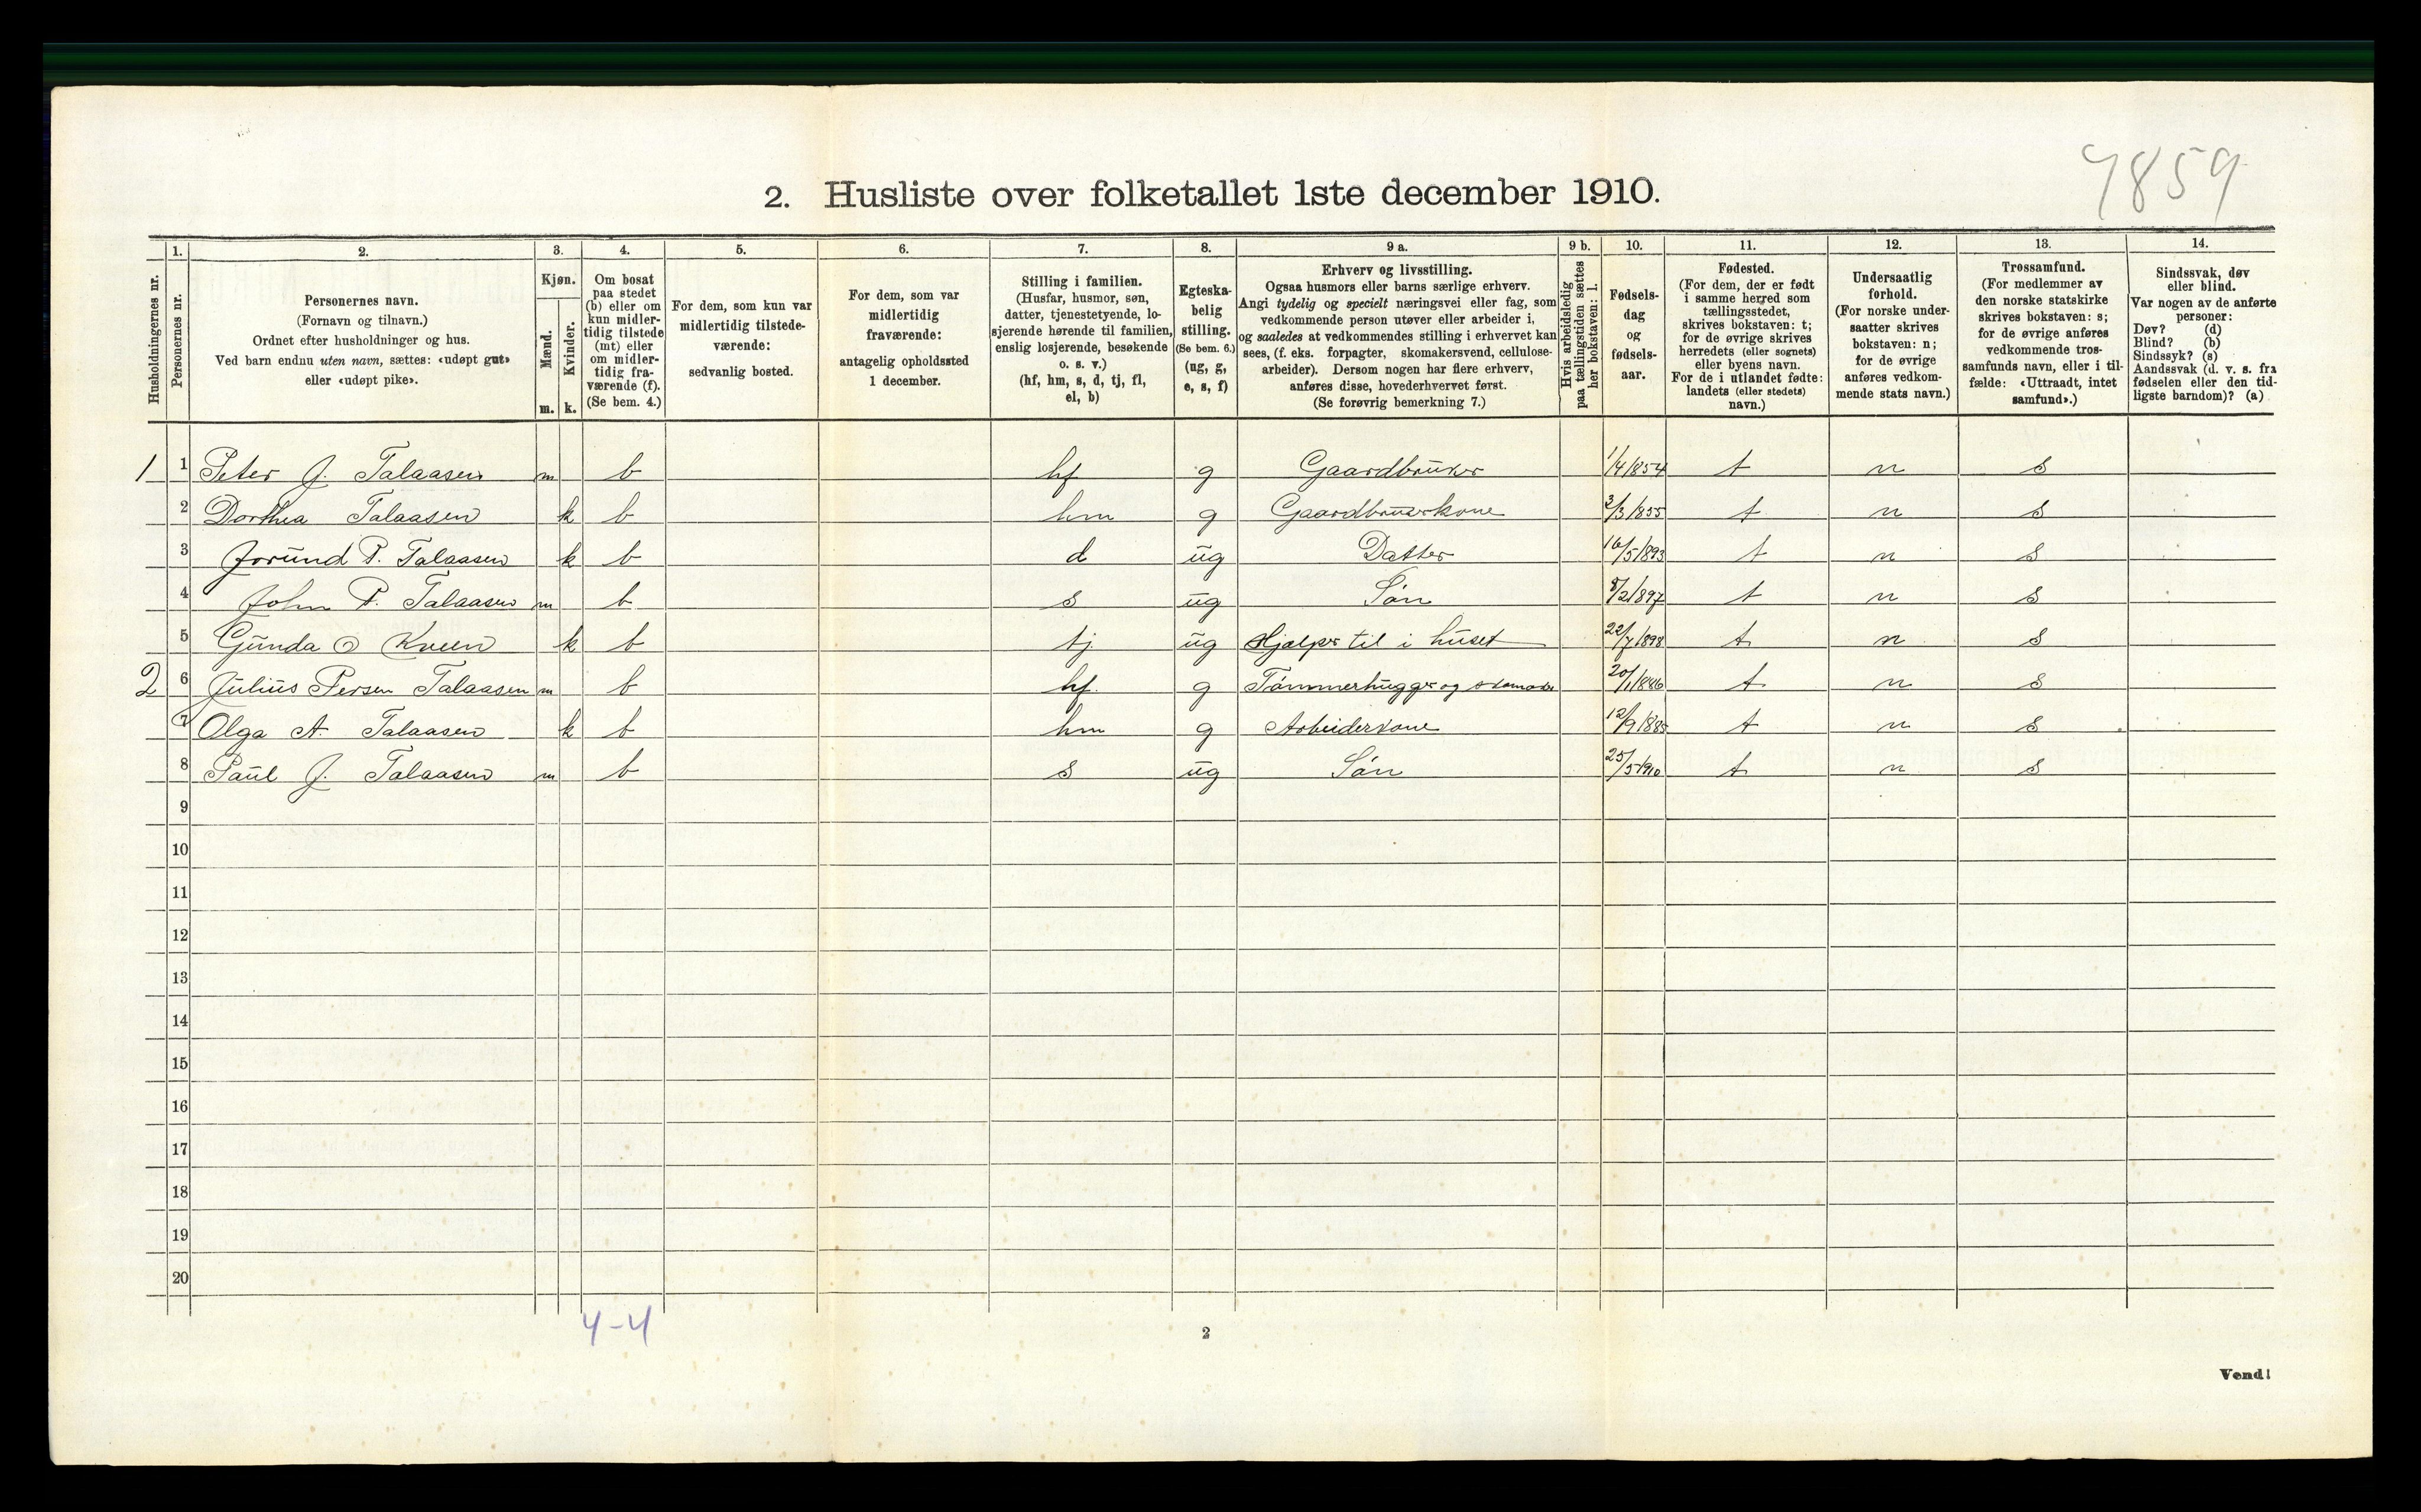 7859
2. Husliste over folketallet 1ste december 1910.
Husholdningernes nr.
1.
Personernes nr.
2.
Personernes navn.
(Fornavn og tilnavn.)
Ordnet efter husholdninger og hus.
Ved barn endnu uten navn, sættes: «udøpt gut»
eller «udøpt pike».
3.
Kjøn.
Mænd.
Kvinder.
m. k.
4.
Om bosat
paa stedet
(b) eller om
kun midler-
tidig tilstede
(mt) eller
om midler-
tidig fra-
værende (f).
(Se bem. 4.)
5.
For dem, som kun var
midlertidig tilstede-
værende:
sedvanlig bosted.
6.
For dem, som var
midlertidig
fraværende:
antagelig opholdssted
1 december.
7.
Stilling i familien.
(Husfar, husmor, søn,
datter, tjenestetyende, lo-
sjerende hørende til familien,
enslig losjerende, besøkende
o. s. v.)
(hf, hm, s, d, tj, fl,
el, b)
8.
Egteska-
belig
stilling.
(Se bem. 6.)
(ug, g,
e, s, f)
9 a.
Erhverv og livsstilling.
Ogsaa husmors eller barns særlige erhverv.
Angi tydelig og specielt næringsvei eller fag, som
vedkommende person utøver eller arbeider i,
og saaledes at vedkommendes stilling i erhvervet kan
sees, (f. eks. forpagter, skomakersvend, cellulose-
arbeider). Dersom nogen har flere erhverv,
anføres disse, hovederhvervet først.
(Se forøvrig bemerkning 7.)
9 b.
Hvis arbeidsledig
paa tællingstiden sættes
her bokstaven: l.
10.
Fødsels-
dag
og
fødsels-
aar.
11.
Fødested.
(For dem, der er født
i samme herred som
tællingsstedet,
skrives bokstaven: t;
for de øvrige skrives
herredets (eller sognets)
eller byens navn.
For de i utlandet fødte:
landets (eller stedets)
navn.)
12.
Undersaatlig
forhold.
(For norske under-
saatter skrives
bokstaven: n;
for de øvrige
anføres vedkom-
mende stats navn.)
13.
Trossamfund.
(For medlemmer av
den norske statskirke
skrives bokstaven: s;
for de øvrige anføres
vedkommende tros-
samfunds navn, eller i til-
fælde: «Uttraadt, intet
samfund».)
14.
Sindssvak, døv
eller blind.
Var nogen av de anførte
personer:
Døv? (d)
Blind? (b)
Sindssyk? (s)
Aandssvak (d. v. s. fra
fødselen eller den tid-
ligste barndom)? (a)
1 1 Peter J. Talaasen m b hf g Gaardbruker 1/4 1854 t n s
2 Dorthea Talaasen k b hm g Gaardbrukerkone 2/3 1855 t n s
3 Jorund P. Talaasen k b d ug Datter 16/5 1893 t n s
4 John P. Talaasen m b s ug Søn 8/2 1897 t n s
5 Gunda O Kveen k b tj ug Hjælper til i huset 22/7 1898 t n s
2 6 Julius Persen Talaasen m b hf. g Tømmerhugger og skomaker 20/1 1886 t n s
7 Olga A. Talaasen k b hm g Arbeiderkone 12/9 1885 t n s
8 Paul J. Talaasen m b s ug Søn 25/5 1910 t n s
9
10
11
12
13
14
15
16
17
18
19
20
4-4
2
Vend!